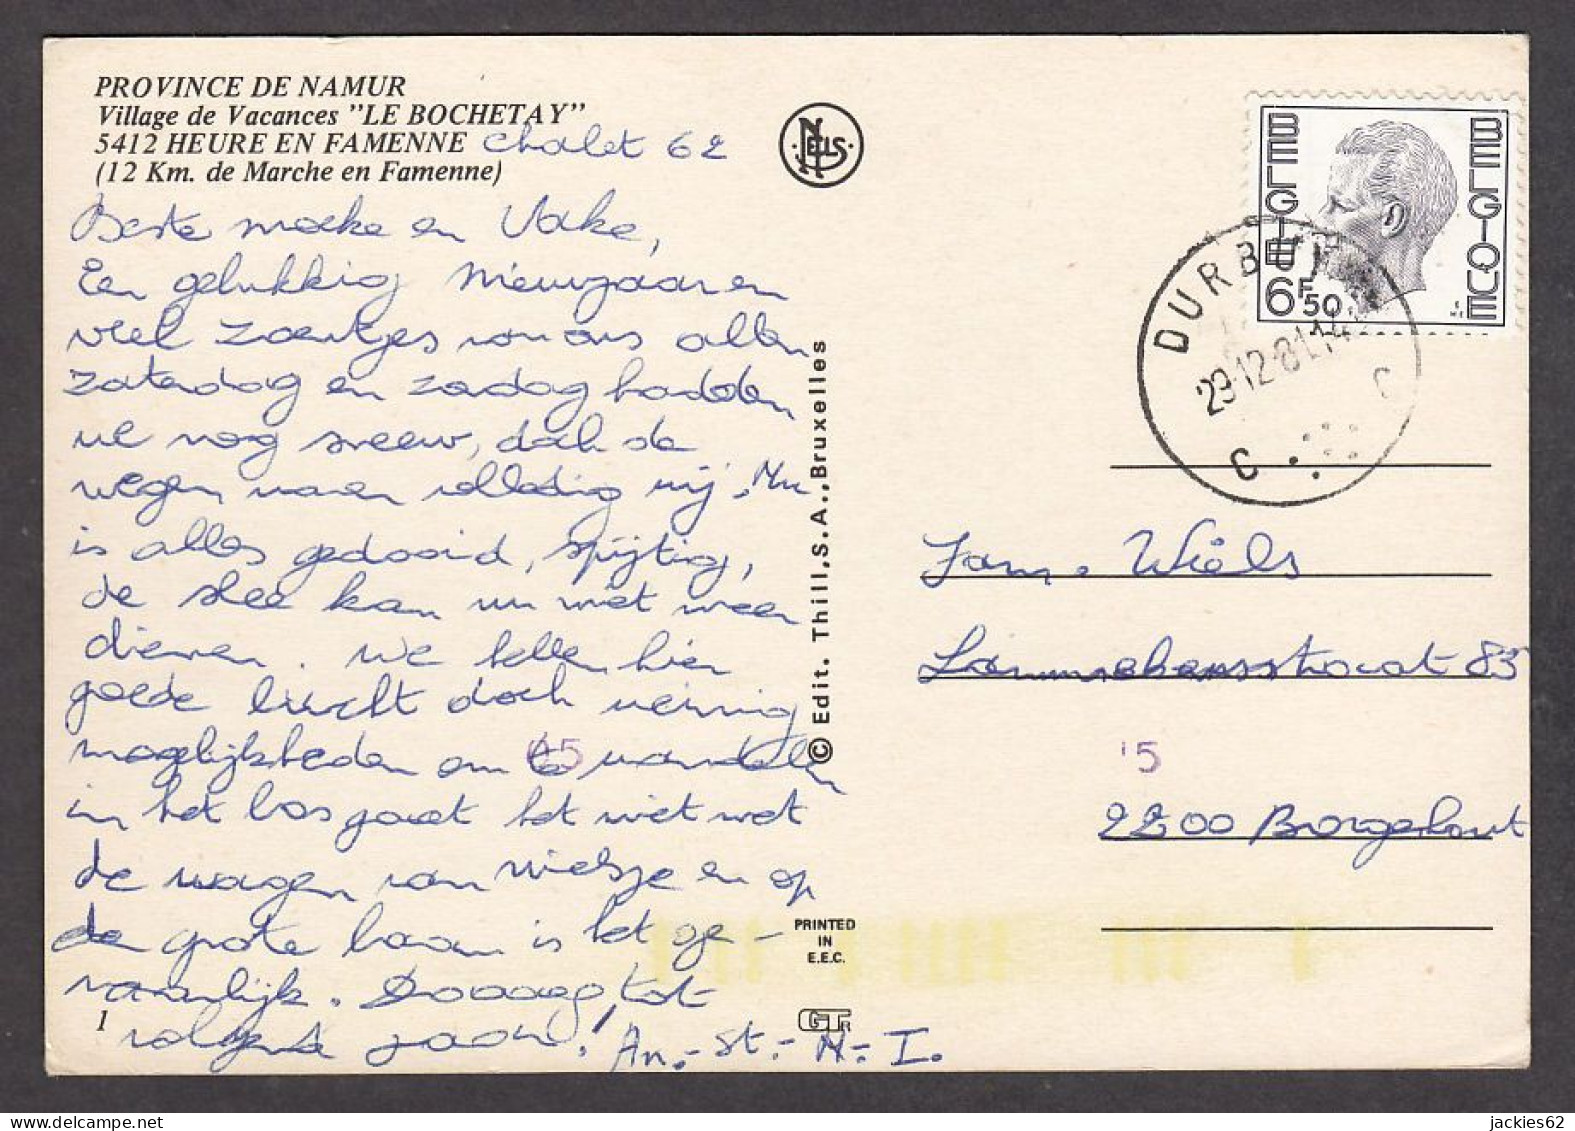 PROVINCE DE NAMUR
Village de Vacances "LE BOCHETAY"
5412 HEURE EN FAMENNE Chalet 62
(12 Km. de Marche en Famenne)
Beste moeke en Vake,
Een gelukkig Nieuwjaar en
veel zoentjes van ons allen
zaterdag en zondag hadden
we nog sneeuw, doch de
wegen waren volledig vrij. Nu
is alles gedooid, spijtig,
de slee kan nu niet meer
dienen. We hebben hier
goede lucht doch weinig
mogelijkheden om te wandelen
in het bos gaat het niet met
de wagen van Nielsje en op
de grote baan is het ge-
vaarlijk. Daaaag tot
volgend jaar! An.- St.- N.- I.
1
NELS
© Edit. Thill, S.A., Bruxelles
PRINTED
IN
E.E.C.
GTR
BELGIE
BELGIQUE
6F50
DURBUY
29-12-81.14
C C
Wiels
85
65
15
2200 Borgerhout
jackies62